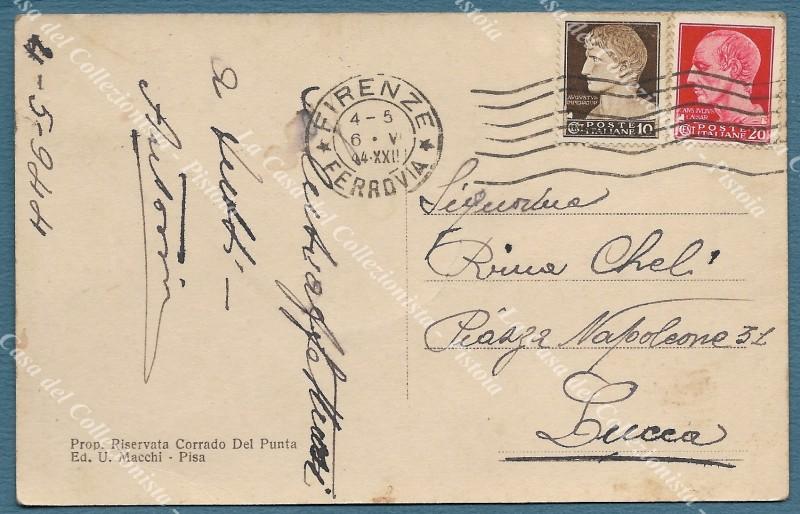 4-5-944
a tutti -
FIRENZE
4-5
6 · V
44·XXII
FERROVIA
AUGUSTUS
IMPERATOR
POSTE
ITALIANE 10
CAESAR
POSTE
ITALIANE 20
Signorina
Rina Cheli
Piazza Napoleone 31
Lucca
Prop. Riservata Corrado Del Punta
Ed. U. Macchi - Pisa
La Casa del Collezionista - Pistoia